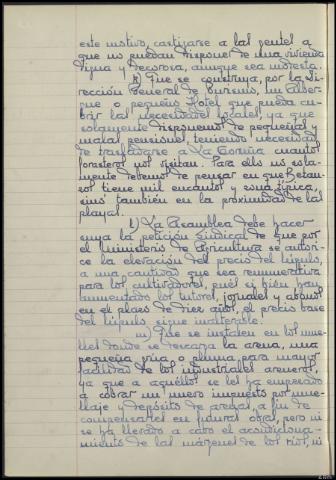 este motivo, castigarse a las gentes a
que no puedan disponer de una vivienda
digna y decorosa, aunque sea modesta.
k) Que se construya, por la Di-
rección General de Turismo, un Alber-
gue o pequeño Hotel que pueda cu-
brir las necesidades locales, ya que
solamente disponemos de pequeñas y
malas pensiones, teniendo necesidad
de trasladarse a La Coruña cuantos
forasteros nos visitan. Para ello no sola-
mente debemos de pensar en que Betan-
zos tiene mil encantos y es típica,
sino también en la proximidad de las
playas.
l) La Asamblea debe hacer
suya la petición Sindical de que por
el Ministerio de Agricultura se autori-
ce la elevación del precio del lúpulo,
a una cantidad que sea remunerativa
para los cultivadores, pues si bien han
aumentado los tutores, jornales y abonos
en el plazo de diez años, el precio base
del lúpulo sigue inalterable.
m) Que se instalen en los mue-
lles donde se descarga la arena, una
pequeña grúa o pluma para mayor
facilidad de los industriales areneros,
ya que a aquellos se les ha empezado
a cobrar un nuevo impuesto por mue-
llaje y depósito de arenas, a fin de
compensarles en futuras obras, pero ni
se ha llevado a cabo el acondiciona-
miento de las márgenes de los ríos, ni